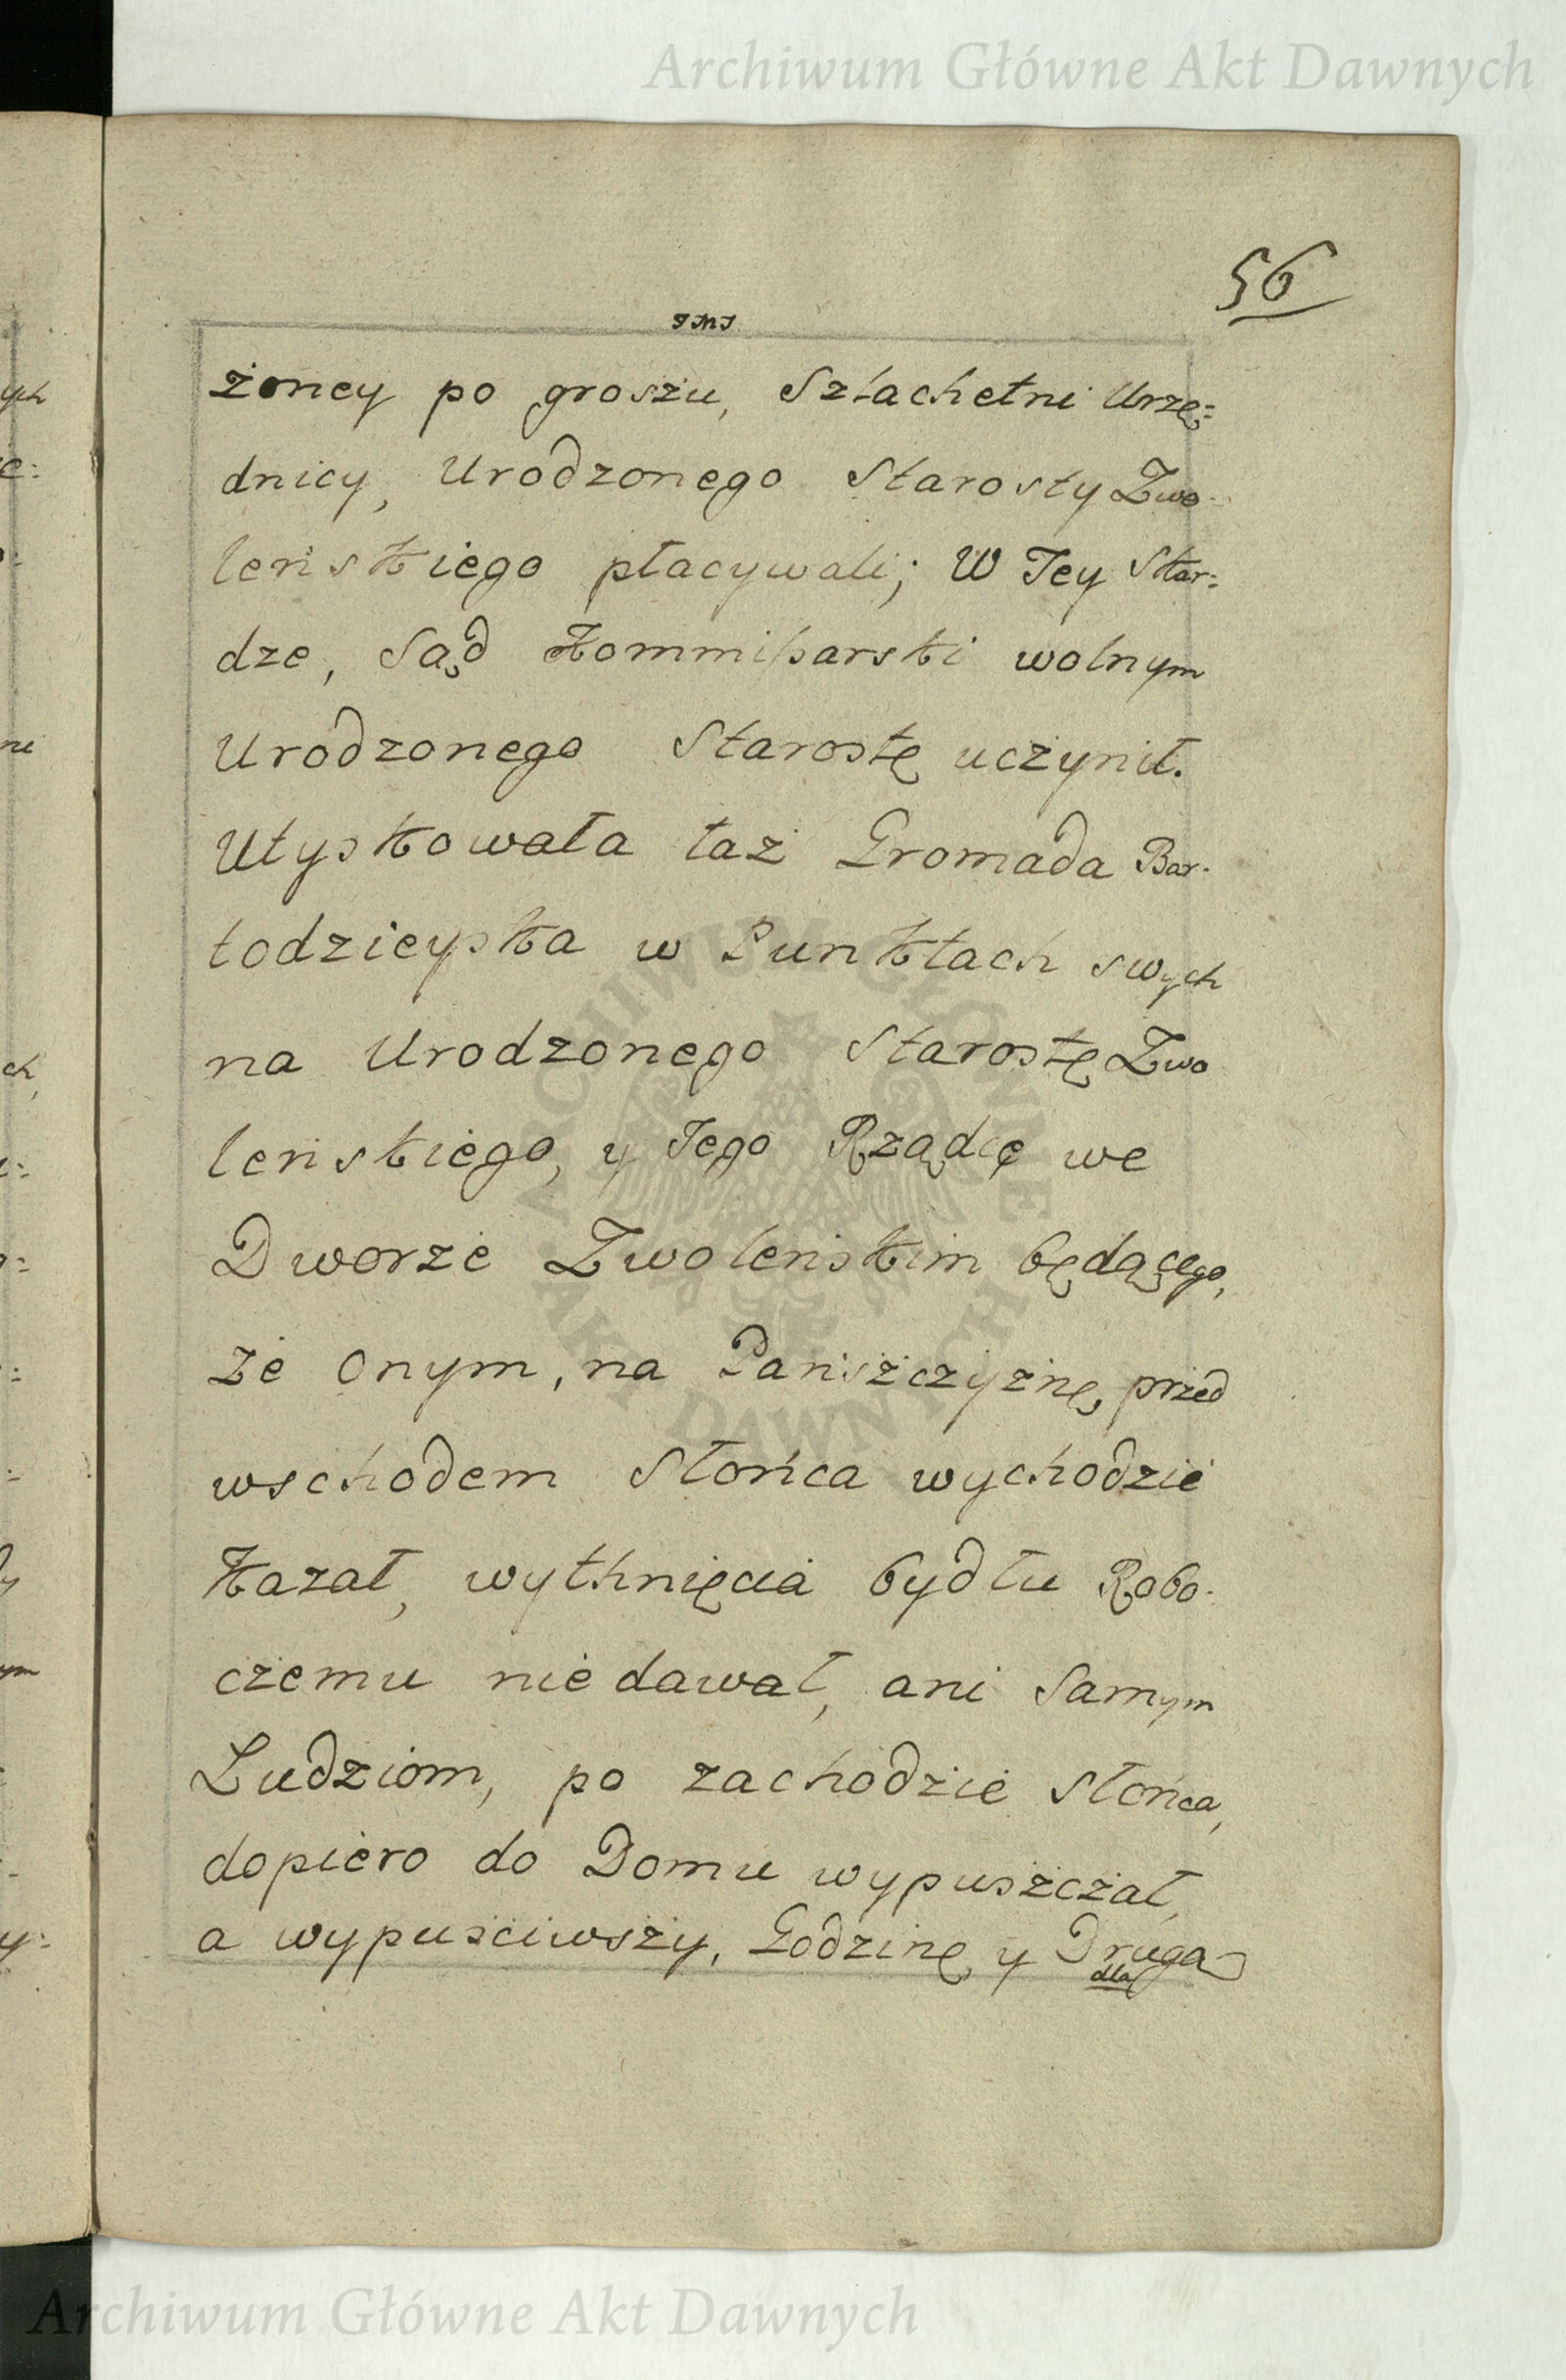 Archiwum Główne Akt Dawnych
56
JMJ
żoney po groszu, Szlachetni Urzę=
dnicy, Urodzonego Starosty Zwo-
leńskiego płacywali; W Tey Skar=
dze, Sąd Kommißarski wolnym
Urodzonego Starostę uczynił.
Utyskowała taż Gromada Bar-
todzieyska w Punktach swych
na Urodzonego Starostę Zwo
leńskiego, y Jego Rządcę we
Dworze Zwoleńskim będącego,
że onym, na Pańszczyznę, przed
wschodem Słońca wychodzić
Kazał, wythnięcia bydłu Robo-
czemu niedawał, ani Samym
Ludziom, po zachodzie Słońca,
dopiero do Domu wypuszczał,
a wypuściwszy, Godzinę y Drugą
dla
ARCHIWUM GŁÓWNE AKT DAWNYCH
Archiwum Główne Akt Dawnych